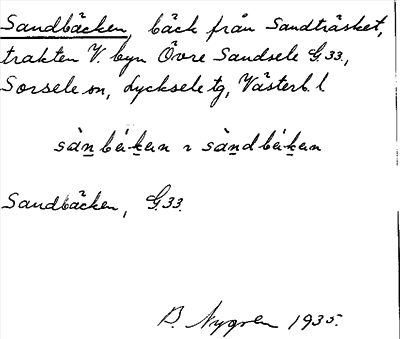 Sandbäcken, bäck från Sandträsket,
trakten V. byn Övre Sandsele G.33.,
Sorsele sn, Lycksele tg, Västerb. l
sàn̲bék̲en ~ sàn̲dbék̲en
Sandbäcken, G.33.
B. Nygren 1935.